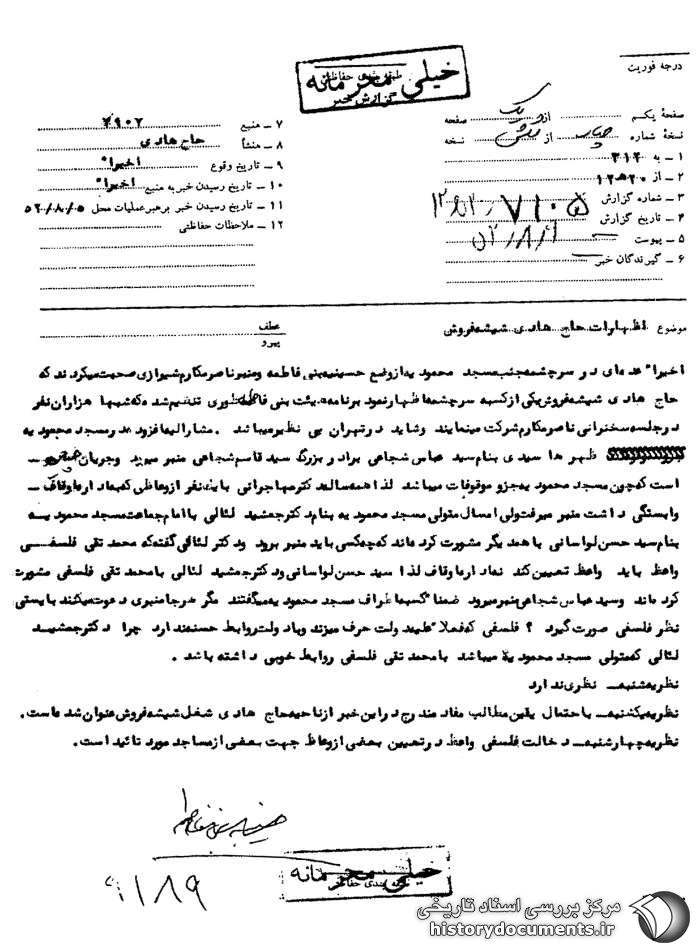 خیلی محرمانه
طبقه بندی حفاظتی
گزارش خبر
درجه فوریت
صفحهٔ یکم از یک صفحه
نسخهٔ شماره چهار از شش نسخه
۱ – به ۳۱۲
۲ – از ۲۰ه۱۲
۳ – شماره گزارش ۷۱۰۵
۴ – تاریخ گزارش
۵ – پیوست
۶ – گیرندگان خبر
۷ – منبع ۷۹۰۲
۸ – منشأ حاج هادی
۹ – تاریخ وقوع اخیرا"
۱۰ – تاریخ رسیدن خبر به منبع اخیرا"
۱۱ – تاریخ رسیدن خبر برهبر عملیات محل ۵۲/۸/۵
۱۲ – ملاحظات حفاظتی
موضوع اظهارات حاج هادی شیشه‌فروش
عطف
پیرو
اخیرا" عده‌ای در سرچشمه جنب مسجد محمودیه از وضع حسینیه بنی فاطمه و منبر ناصر مکارم شیرازی صحبت میکردند که
حاج هادی شیشه فروش یکی از کسبه سرچشمه اظهار نمود برنامه هیئت بنی فاطمه طوری تنظیم شده که شبها هزاران نفر
در جلسه سخنرانی ناصر مکارم شرکت مینمایند و شاید در تهران بی نظیر میباشد . مشارالیه افزود در مسجد محمودیه
ظهرها سیدی بنام سید عباس شجاعی برادر بزرگ سید قاسم شجاعی منبر میرود و جریان چنین
است که چون مسجد محمودیه جزو موقوفات میباشد لذا همه ساله دکتر مهاجرانی یا یک نفر از وعاظی که به اداره اوقاف –
وابستگی داشت منبر میرفت ولی امسال متولی مسجد محمودیه بنام دکتر جمشید لئالی با امام جماعت مسجد محمودیه
بنام سید حسن لواسانی با همدیگر مشورت کرده‌اند که چه کسی باید منبر برود و دکتر لئالی گفته که محمد تقی فلسفی
واعظ باید واعظ تعیین کند نه اداره اوقاف لذا سید حسن لواسانی و دکتر جمشید لئالی با محمد تقی فلسفی مشورت
کرده‌اند و سید عباس شجاعی منبر میرود ضمنا" کسبه اطراف مسجد محمودیه میگفتند مگر هر جا منبری دعوت میکنند بایستی
نظر فلسفی صورت گیرد ؟ فلسفی که فعلا" علیه دولت حرف میزند و با دولت روابط حسنه ندارد چرا دکتر جمشید
لئالی که متولی مسجد محمودیه میباشد با محمد تقی فلسفی روابط خوبی داشته باشد .
نظریه شنبه – نظری ندارد
نظریه یکشنبه – باحتمال یقین مطالب مفاد مندرج در این خبر از ناحیه حاج هادی شغل شیشه فروش عنوان شده است .
نظریه چهارشنبه – دخالت فلسفی واعظ در تعیین بعضی از وعاظ جهت بعضی از مساجد مورد تائید است .
۹۱۸۹
خیلی محرمانه
طبقه بندی حفاظتی
مرکز بررسی اسناد تاریخی
historydocuments.ir